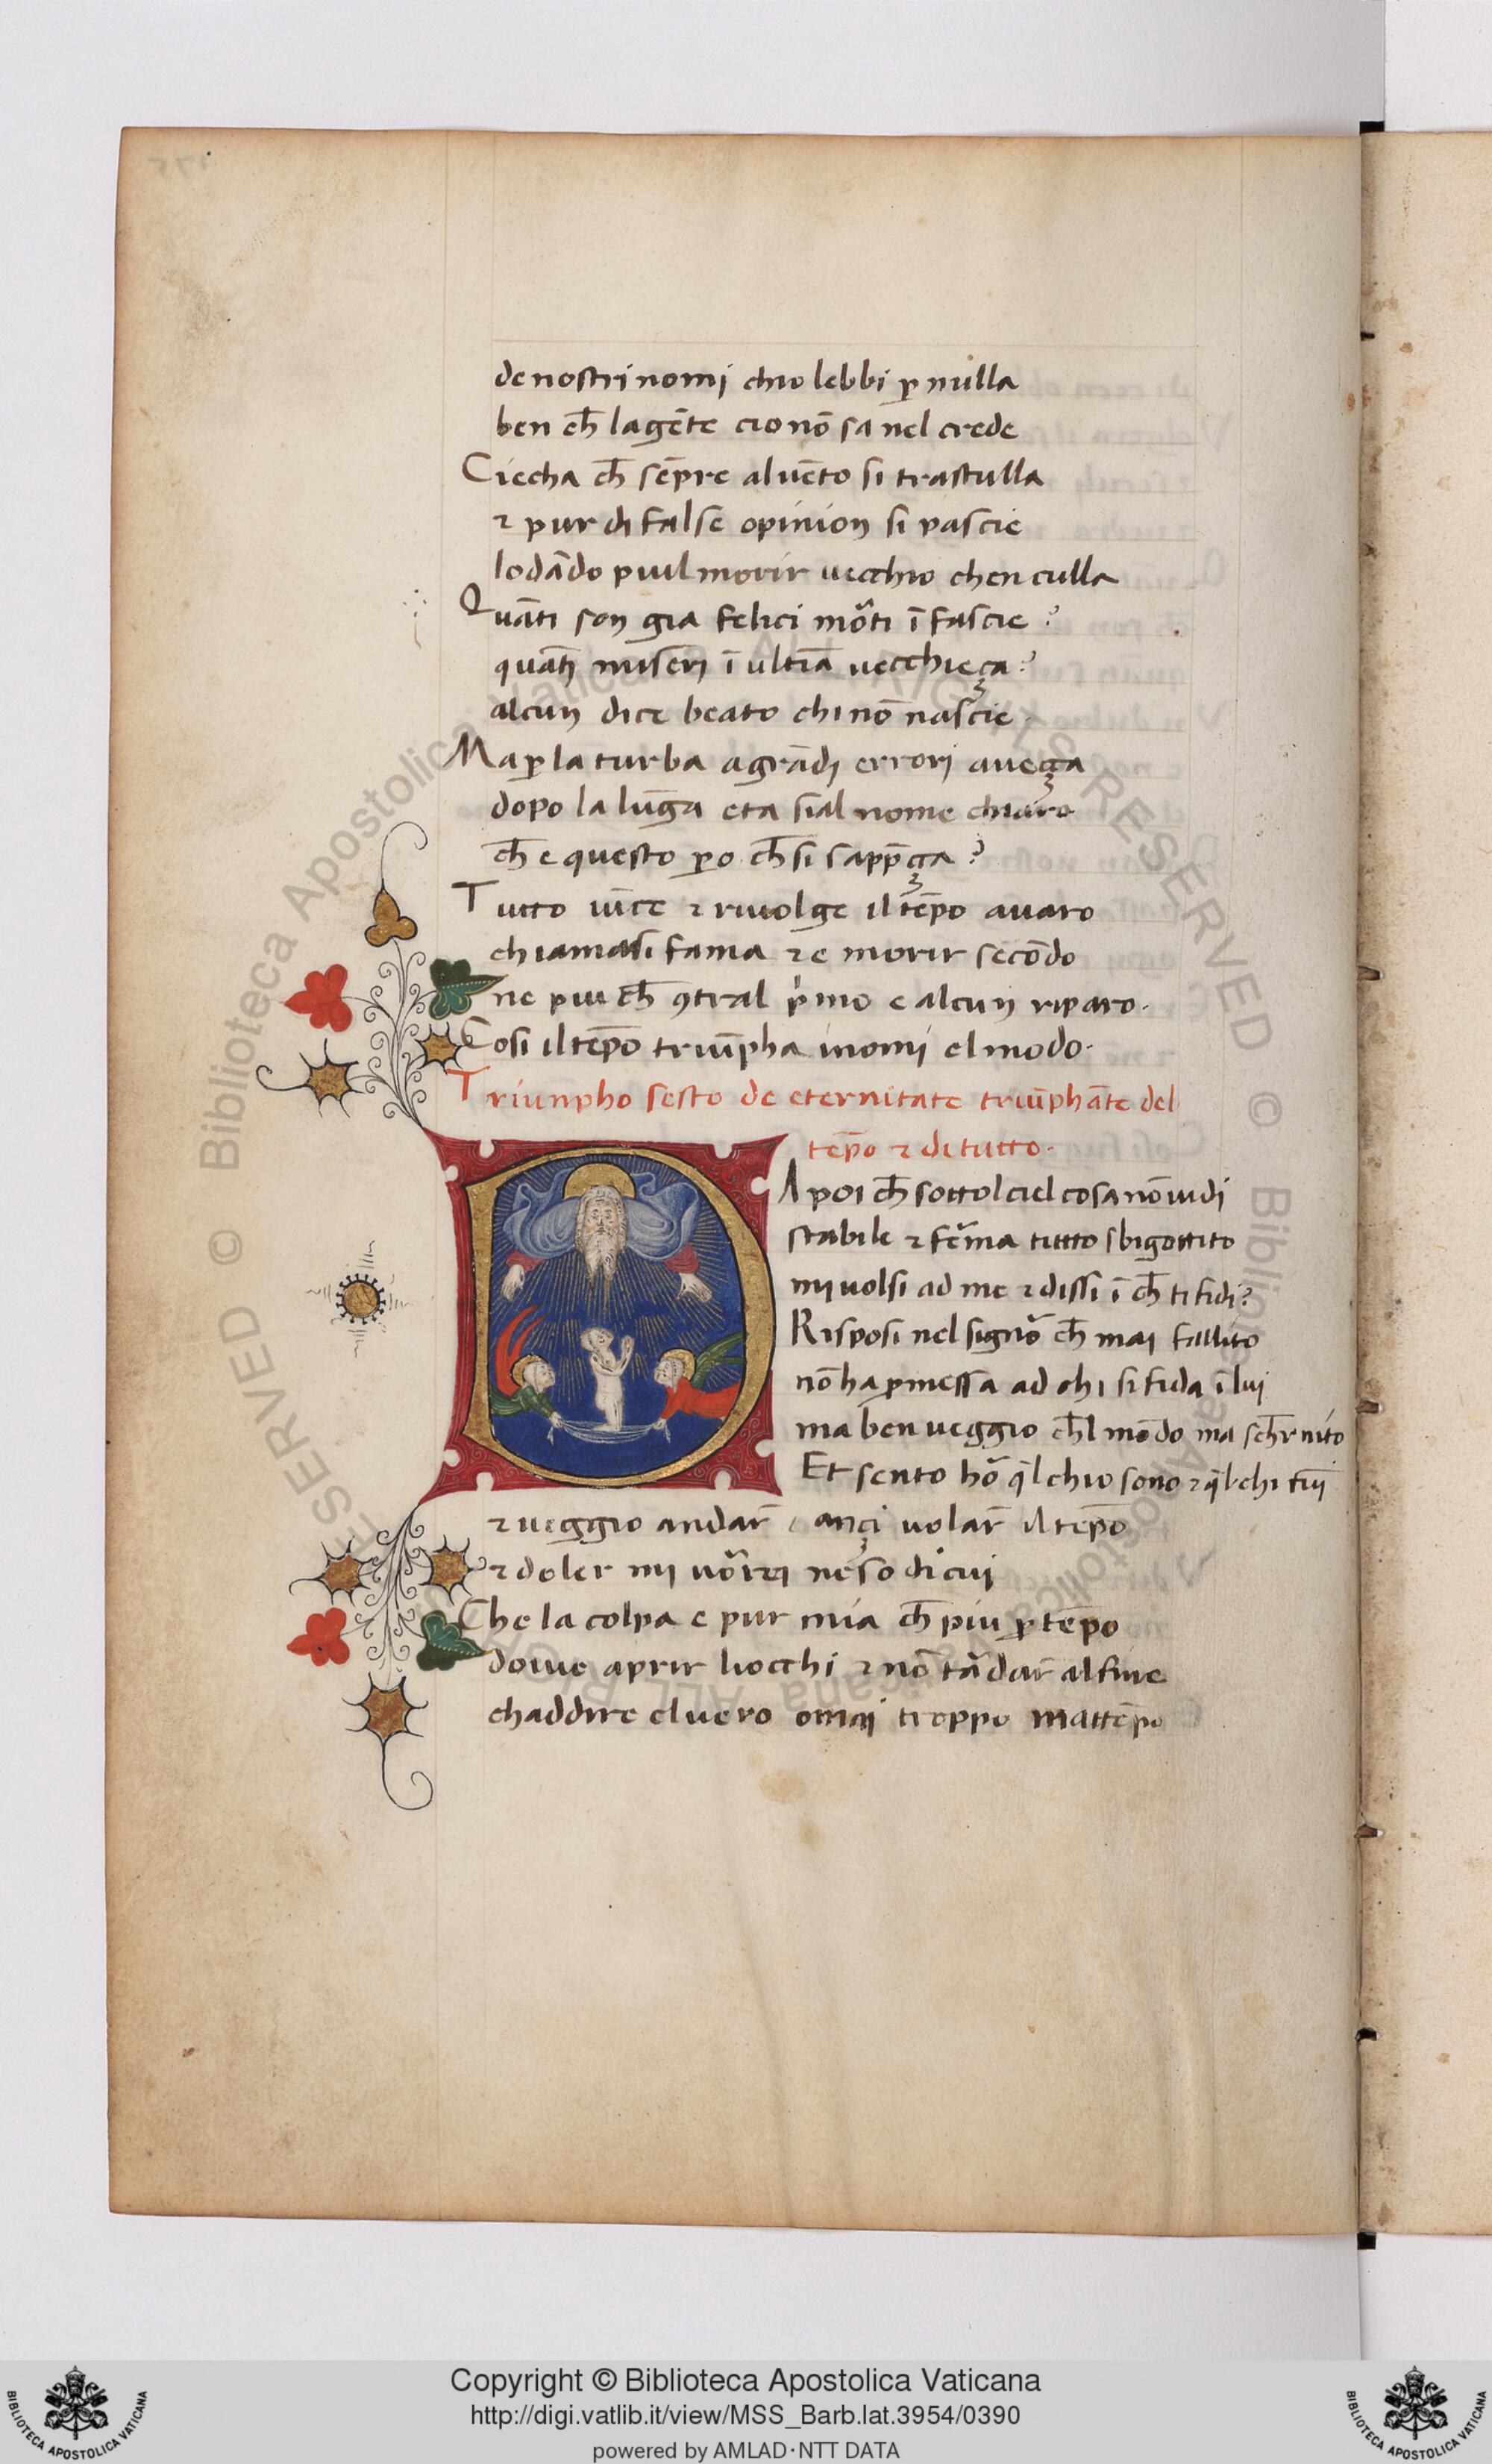 de nostri nomi chio lebbi ꝑ nulla
ben ch̅ la gēte cio nō sa nel crede
Ciecha ch̅ sēpre al uēto si trastulla
⁊ pur di false opinion si pascie
lodādo piul morir uecchio chen culla
Quāti son gia felici mōti ī fascie?
quāti miseri ī ultīa uecchieça?
alcun dice beato chi nō nascie.
Ma ꝑ la turba a grādi errori aueça
dopo la lūga eta sial nome chiaro
ch̅ e questo ꝑo ch̅ si sappręça?
Tutto uīce ⁊ riuolge il tēpo auaro
chiamasi fama ⁊ e morir secōdo
ne piu ch̅ ꝯtral pͥmo e alcun riparo.
Cosi il tēpo triūpha i nomi el modo.
Triunpho sesto de eternitate triūphāte del
tēpo ⁊ di tutto.
DA poi ch̅ sottol ciel cosa nō uidi
stabile ⁊ fēma tutto sbigottito
mi uolsi ad me ⁊ dissi ī ch̅ ti fidi?
Risposi nel signō ch̅ mai fallito
nō ha ꝓmessa ad chi si fida ī lui
ma ben ueggio ch̅l mōdo ma sch̅rnito
Et sento hō q̄l chio sono ⁊ q̄l chi fui
⁊ ueggio andar̄ ançi uolar̄ il tēpo
⁊ doler mi uōrei ne so di cui
Che la colpa e pur mia ch̅ piu ꝑ tēpo
douio aprir liocchi ⁊ nō tādar̄ al fine
chaddire eluero omai troppo mattēpo
Copyright © Biblioteca Apostolica Vaticana
http://digi.vatlib.it/view/MSS_Barb.lat.3954/0390
powered by AMLAD·NTT DATA
BIBLIOTECA APOSTOLICA VATICANA
BIBLIOTECA APOSTOLICA VATICANA